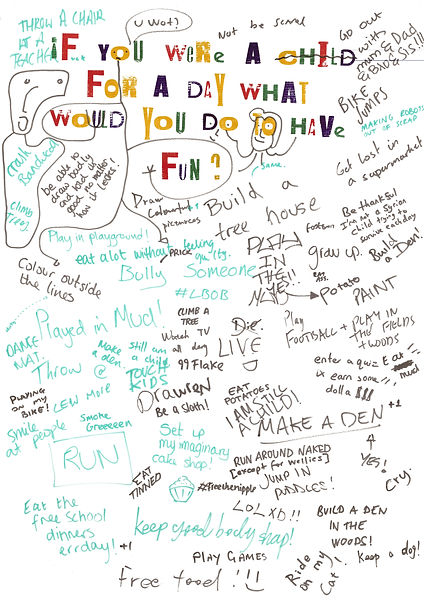 THROW A CHAIR
AT A
TEACHER
U WOT?
Not be scared
Go out
with
Mum & Dad
& Bro & Sis!!!
IF YOU WERE A CHILD
FOR A DAY WHAT
WOULD YOU DO TO HAVE
FUN?
BIKE
JUMPS
MAKING ROBOTS
OUT OF SCRAP
Get lost in
a supermarket
Trash
Bandicoot
be able to
draw badly
and told
good no matter
how it looks!
CLIMB
TREES
same.
Draw
pictures
Build a
tree house
Be thankful
I'm not a Syrian
child trying to
survive each day
Play in playground!
eat alot without feeling
guilty.
PRICK
PLAY
IN
THE!!
grow up.
Build
Den!
Colour outside
the lines
Bully Someone
#LBOB
EAT
ASS.
Potato
PAINT
Played in Mud!
CLIMB A
TREE
Watch TV
all day
99 Flake
Die.
LIVE
Play
FOOTBALL + PLAY IN
THE FIELDS
+ WOODS
DANCE
Make
a den
Still am
a child
TOUCH
KIDS
Throw @
enter a quiz
& earn some
dolla $$$
Eat
mud
PLAYING
ON MY
BIKE!
Be a Sloth!
EAT
POTATOES
I AM STILL
A CHILD!
MAKE A DEN +1
Smile
at people
Smoke
Greeeeen
RUN
Set up
my imaginary
cake shop!
RUN AROUND NAKED
[except for wellies]
JUMP IN
PUDDLES!
YES!
Cry.
EAT
TINNED
#freethenipple
LOLXD!!
Eat the
free School
dinners
errday! +1
keep good body shap!
BUILD A DEN
IN THE
WOODS!
PLAY GAMES
Ride
on my
Cat!
keep a dog!
Free food!!!